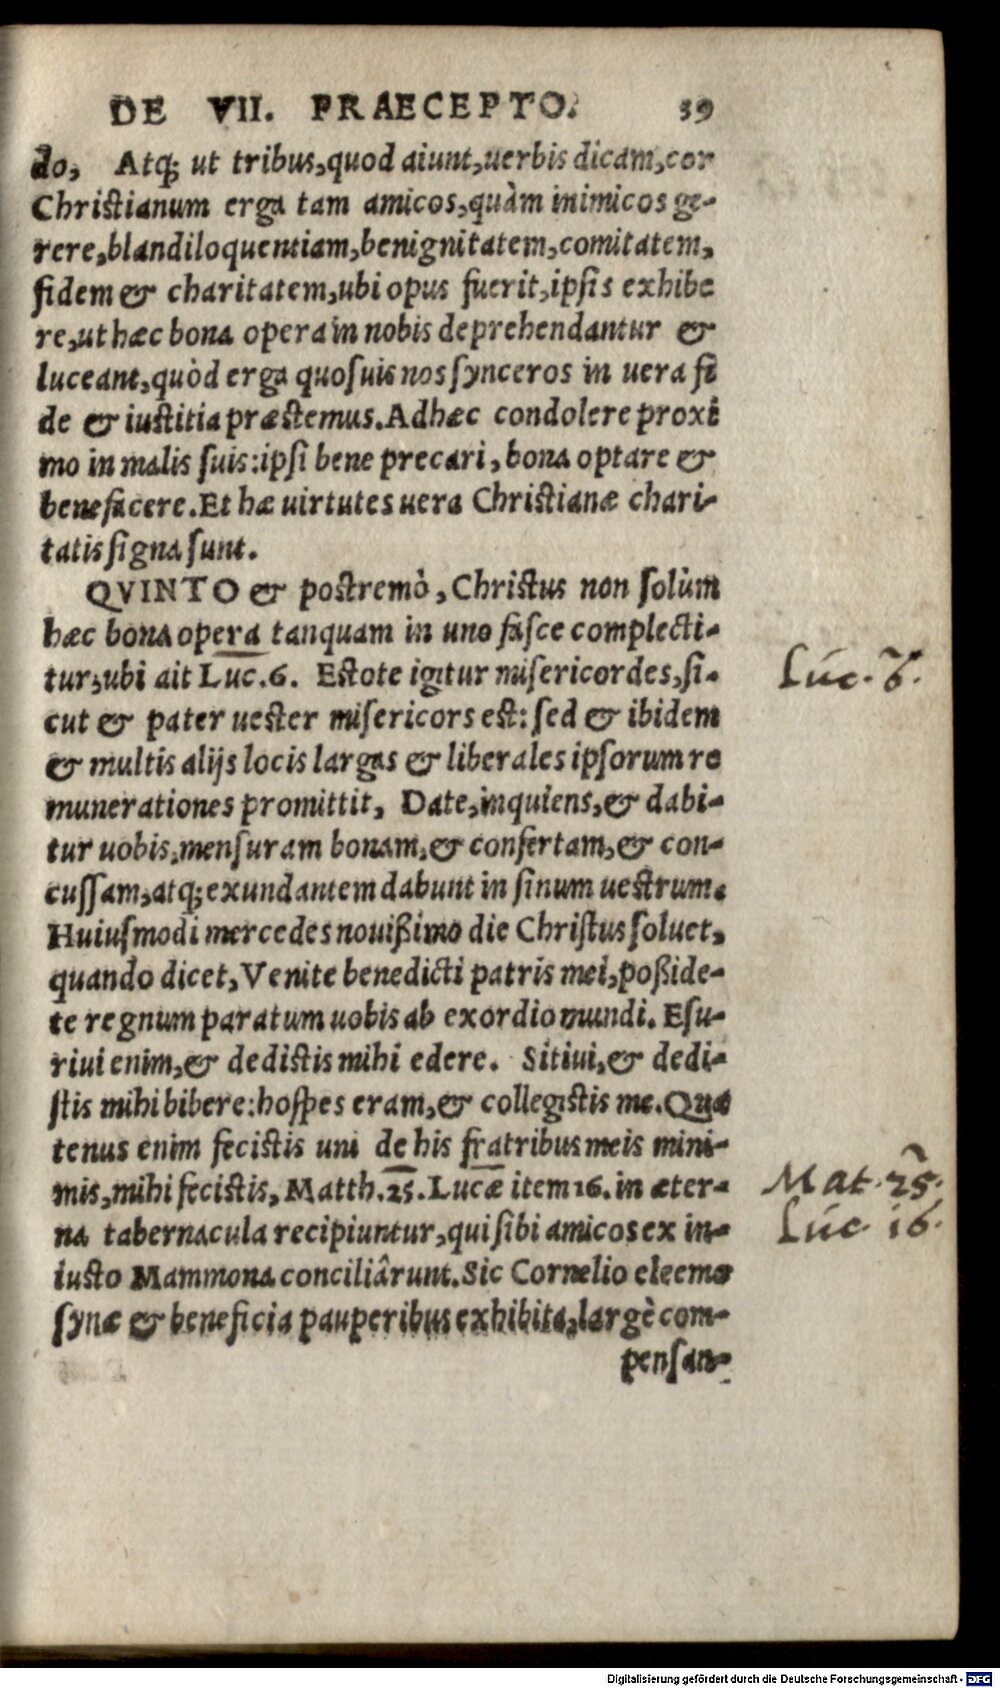 DE VII. PRAECEPTO. 39
do, Atq; ut tribus, quod aiunt, uerbis dicam, cor
Christianum erga tam amicos, quàm inimicos ge-
rere, blandiloquentiam, benignitatem, comitatem,
fidem & charitatem, ubi opus fuerit, ipsis exhibe
re, ut hæc bona opera in nobis deprehendantur &
luceant, quòd erga quosuis nos synceros in uera fi
de & iustitia præstemus. Adhæc condolere proxi
mo in malis suis: ipsi bene precari, bona optare &
benefacere. Et hæ uirtutes uera Christianæ chari-
tatis signa sunt.
QVINTO & postremò, Christus non solùm
hæc bona opera tanquam in uno fasce complecti-
tur, ubi ait Luc. 6. Estote igitur misericordes, si-
cut & pater uester misericors est: sed & ibidem
& multis alijs locis largas & liberales ipsorum re
munerationes promittit, Date, inquiens, & dabi-
tur uobis, mensuram bonam, & confertam, & con-
cussam, atq; exundantem dabunt in sinum uestrum.
Huiusmodi mercedes nouißimo die Christus soluet,
quando dicet, Venite benedicti patris mei, poßide-
te regnum paratum uobis ab exordio mundi. Esu-
riui enim, & dedistis mihi edere. Sitiui, & dedi-
stis mihi bibere: hospes eram, & collegistis me. Qua
tenus enim fecistis uni de his fratribus meis mini-
mis, mihi fecistis, Matth. 25. Lucæ item 16. in æter-
na tabernacula recipiuntur, qui sibi amicos ex in-
iusto Mammona conciliârunt. Sic Cornelio eleemo
synæ & beneficia pauperibus exhibita, largè com-
pensan-
Luc. 6.
Mat. 25.
Luc. 16.
Digitalisierung gefördert durch die Deutsche Forschungsgemeinschaft - DFG